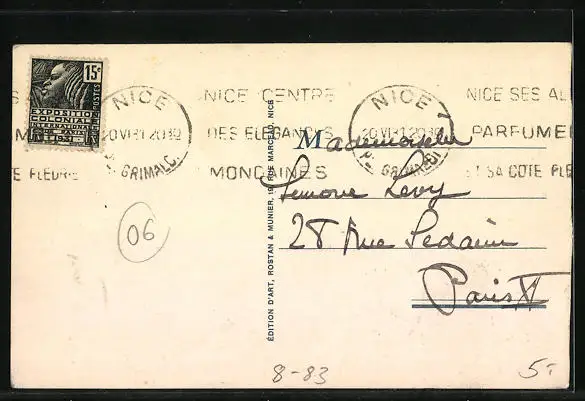 15c
POSTES
EXPOSITION
COLONIALE
INTERNATIONALE
PARIS 1931
NICE
20 VI 31 20 30
PL. GRIMALDI
NICE CENTRE
DES ELEGANCES
MONDAINES
NICE
20 VI 31 20 30
PL. GRIMALDI
NICE SES
PARFUME
ET SA COTE
E FLEURIE
Mademoiselle
Simone Levy
28 Rue
Paris V
ÉDITION D'ART, ROSTAN & MUNIER, RUE MARCEAU, NICE
06
8-83
5.-